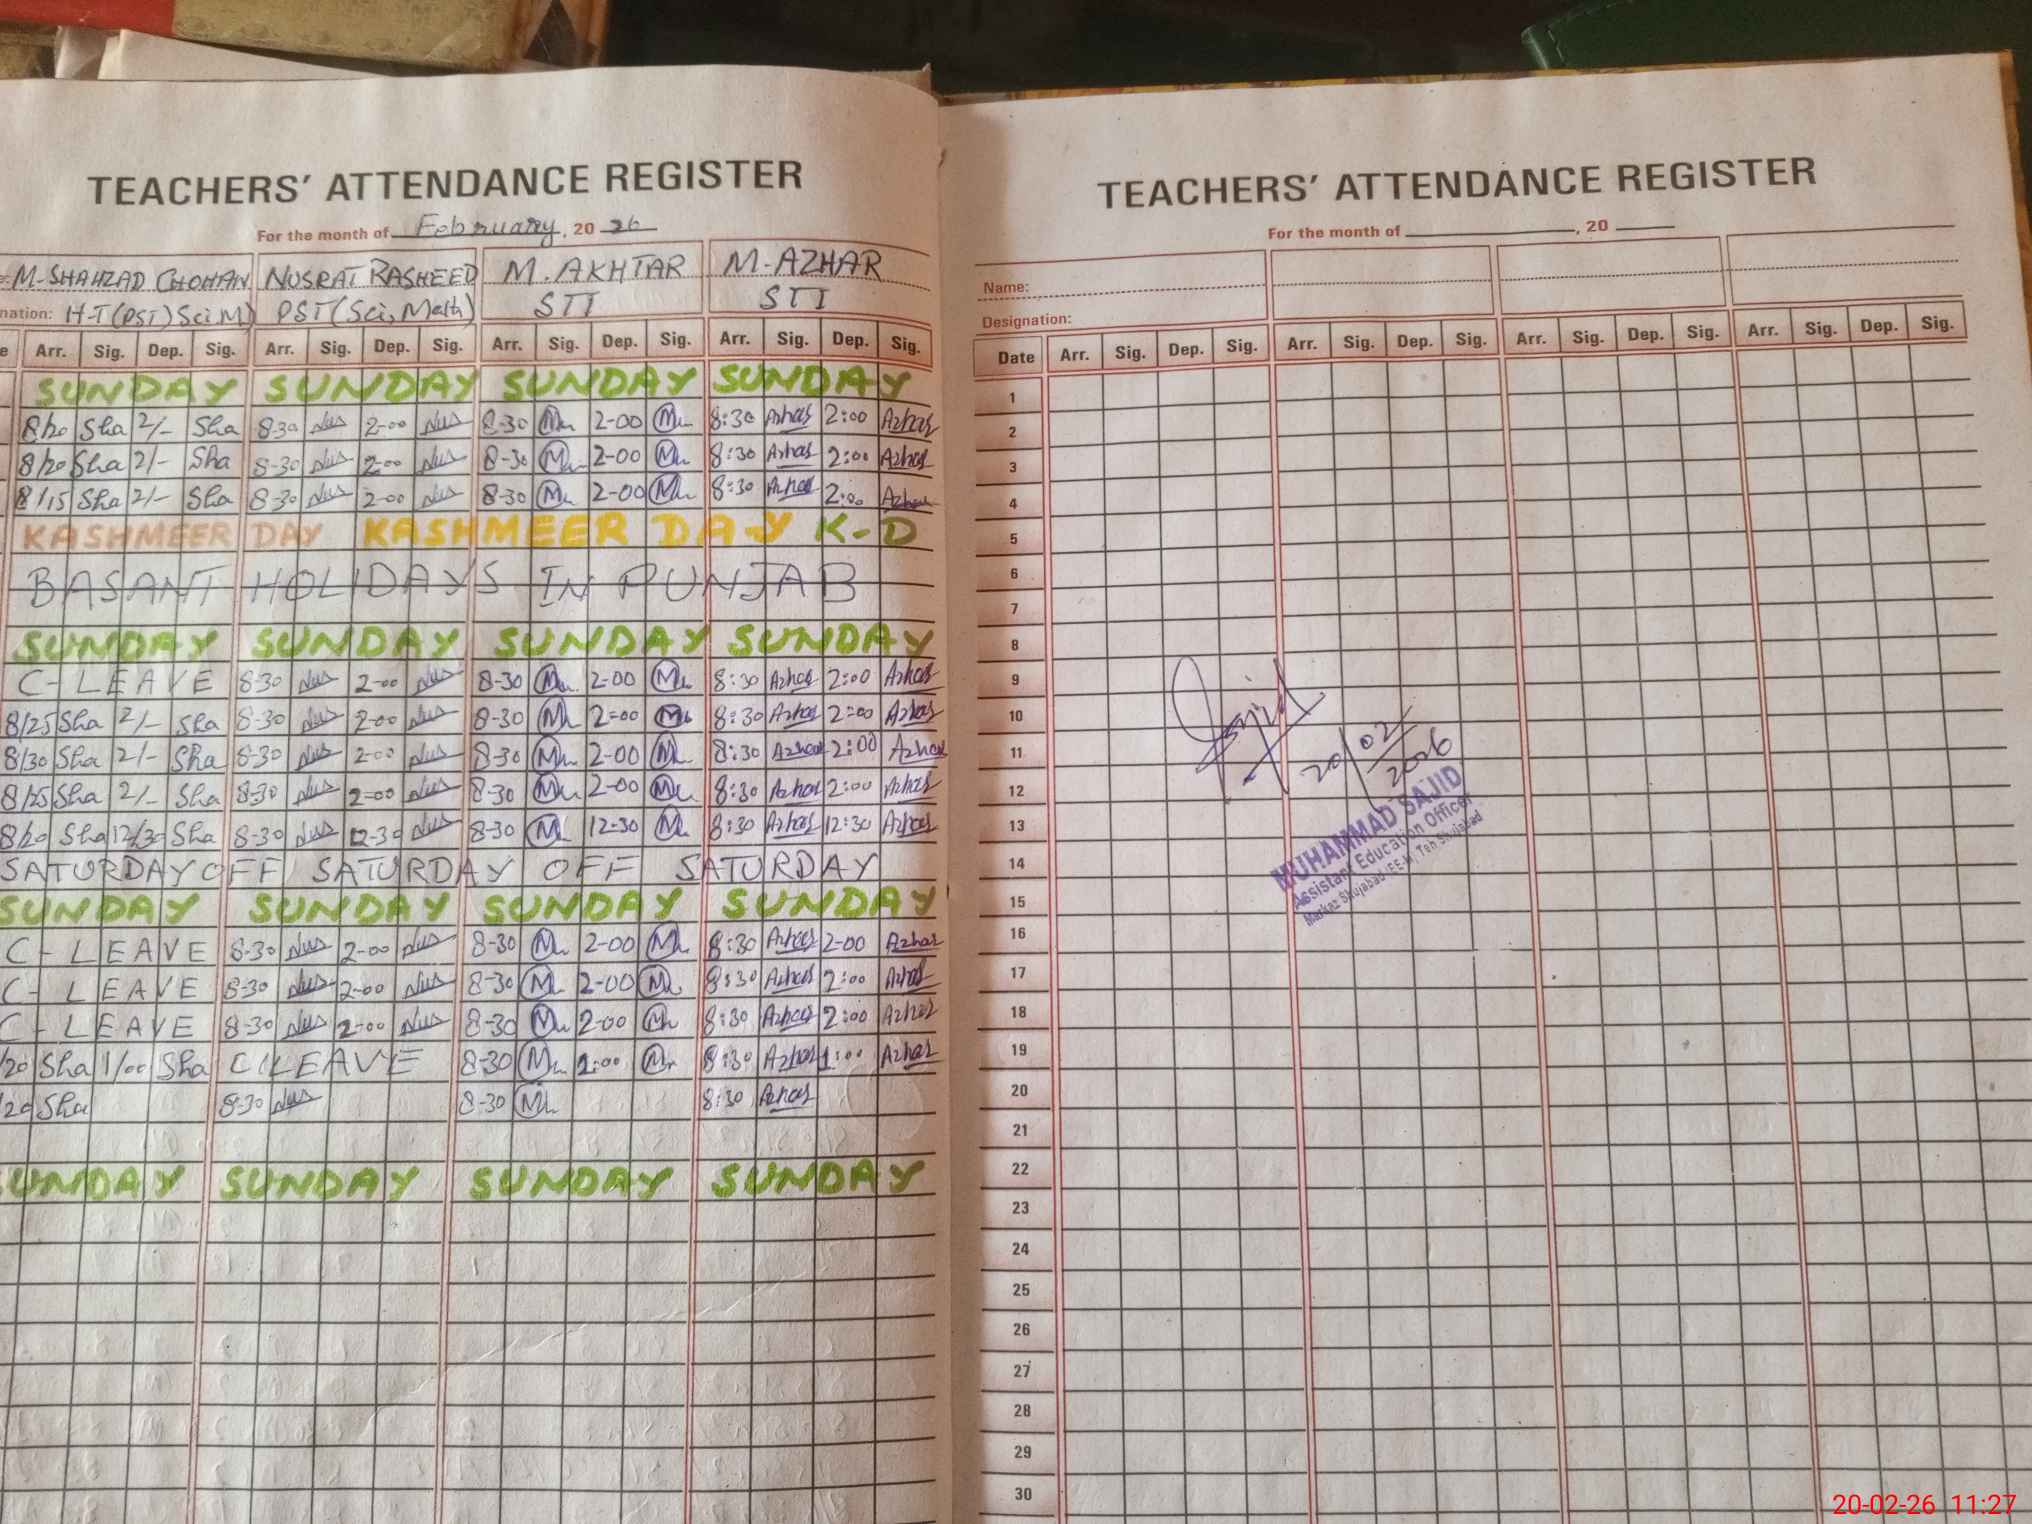 TEACHERS' ATTENDANCE REGISTER
For the month of February, 20 26
M-SHAHZAD CHOHAN NUSRAT RASHEED M. AKHTAR M-AZHAR
nation: H-T(PST) Sci M) PST(Sci, Math) STI STI
e Arr. Sig. Dep. Sig. Arr. Sig. Dep. Sig. Arr. Sig. Dep. Sig. Arr. Sig. Dep. Sig.
SUNDAY SUNDAY SUNDAY SUNDAY
8/20 Sha 2/- Sha 8-30 Nus 2-00 Nus 8-30 M 2-00 M 8:30 Azhar 2:00 Azhar
8/20 Sha 2/- Sha 8-30 Nus 2-00 Nus 8-30 M 2-00 M 8:30 Azhar 2:00 Azhar
8/15 Sha 2/- Sha 8-30 Nus 2-00 Nus 8-30 M 2-00 M 8:30 Azhar 2:00 Azhar
KASHMEER DAY KASHMEER DAY K-D
BASANT HOLIDAYS IN PUNJAB
SUNDAY SUNDAY SUNDAY SUNDAY
C-LEAVE 8-30 Nus 2-00 Nus 8-30 M 2-00 M 8:30 Azhar 2:00 Azhar
8/25 Sha 2/- Sha 8-30 Nus 2-00 Nus 8-30 M 2=00 M 8:30 Azhar 2=00 Azhar
8/30 Sha 2/- Sha 8-30 Nus 2-00 Nus 8-30 M 2-00 M 8:30 Azhar 2:00 Azhar
8/25 Sha 2/- Sha 8-30 Nus 2-00 Nus 8-30 M 2-00 M 8:30 Azhar 2:00 Azhar
8/20 Sha 12/30 Sha 8-30 Nus 12-30 Nus 8-30 M 12-30 M 8:30 Azhar 12:30 Azhar
SATURDAY OFF SATURDAY OFF SATURDAY
SUNDAY SUNDAY SUNDAY SUNDAY
C-LEAVE 8-30 Nus 2-00 Nus 8-30 M 2-00 M 8:30 Azhar 2-00 Azhar
C-LEAVE 8-30 Nus 2-00 Nus 8-30 M 2-00 M 8:30 Azhar 2:00 Azhar
C-LEAVE 8-30 Nus 2-00 Nus 8-30 M 2-00 M 8:30 Azhar 2:00 Azhar
/20 Sha 1/00 Sha C/LEAVE 8-30 M 1:00 M 8:30 Azhar 1:00 Azhar
/20 Sha 8-30 Nus 8-30 M 8:30 Azhar
SUNDAY SUNDAY SUNDAY SUNDAY
TEACHERS' ATTENDANCE REGISTER
For the month of , 20
Name:
Designation:
Date Arr. Sig. Dep. Sig. Arr. Sig. Dep. Sig. Arr. Sig. Dep. Sig. Arr. Sig. Dep. Sig.
1
2
3
4
5
6
7
8
9
10
11
12
13
14
15
16
17
18
19
20
21
22
23
24
25
26
27
28
29
30
Sajid
20/02/2026
MUHAMMAD SAJID
Assistant Education Officer
Markaz Shujabad (EE-M) Teh. Shujabad
20-02-26 11:27